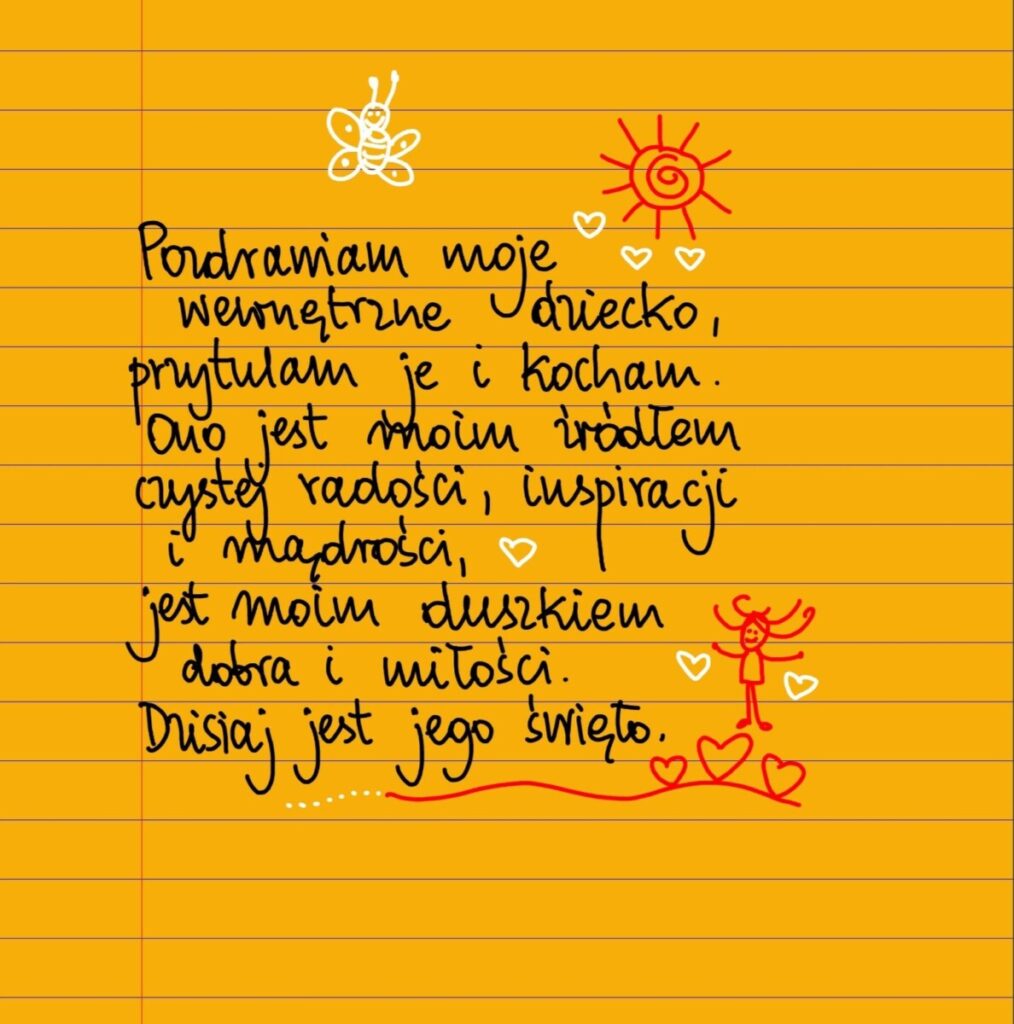 Pozdrawiam moje
wewnętrzne dziecko,
przytulam je i kocham.
Ono jest moim źródłem
czystej radości, inspiracji
i mądrości,
jest moim duszkiem
dobra i miłości.
Dzisiaj jest jego święto.